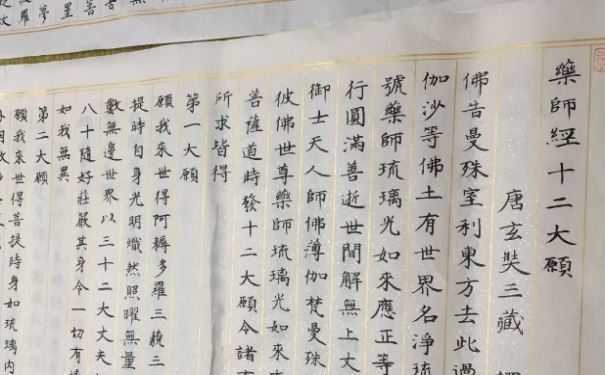 藥師經十二大願
唐玄奘三藏
佛告曼殊室利東方去此過
伽沙等佛土有世界名淨琉
號藥師琉璃光如來應正等
行圓滿善逝世間解無上丈
御士天人師佛薄伽梵曼殊
彼佛世尊藥師琉璃光如來
菩薩道時發十二大願令諸有
所求皆得
第一大願
願我來世得阿耨多羅三藐三
提時自身光明熾然照曜無量
數無邊世界以三十二大丈夫
八十隨好莊嚴其身令一切有
如我無異
第二大願
願我來世得菩提時身如琉璃內